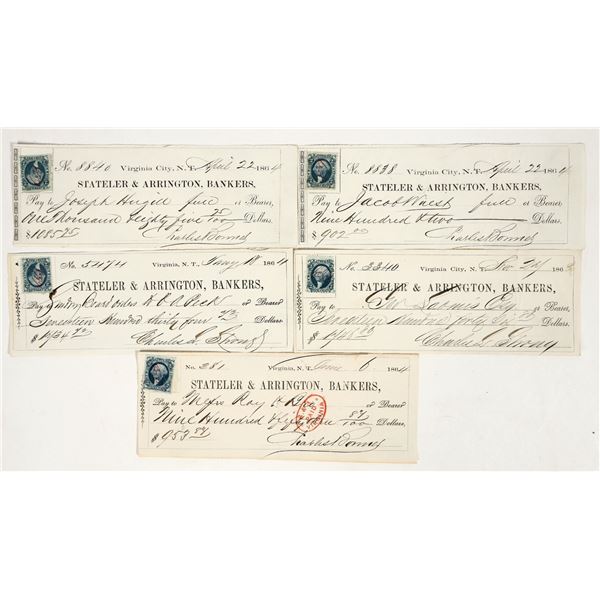 No. 8840 Virginia City, N.T. April 22 1864
STATELER & ARRINGTON, BANKERS,
Pay to Joseph Hugill fine or Bearer
One Thousand Eighty five 25 Dollars.
$1085 25 Charles Bonner
No. 8838 Virginia City, N.T. April 22 1864
STATELER & ARRINGTON, BANKERS,
Pay to Jacob or Bearer
Nine Hundred & two Dollars.
$ 902 00 Charles Bonner
No. 5474 Virginia, N.T., Jany 18 1864
STATELER & ARRINGTON, BANKERS,
Pay or Bearer
Hundred thirty four Dollars.
$ Charles L. Strong
No. 3340 Virginia City, N.T. Nov 24 186
STATELER & ARRINGTON, BANKERS,
Pay to Geo Loomis Esq or Bearer,
Hundred forty Dollars.
$ Charles L. Strong
No. 281 Virginia, N.T. June 6 1864
STATELER & ARRINGTON, BANKERS,
Pay to Messrs or Bearer
Nine Hundred 87/100 Dollars,
$ 953 87 Charles Bonner
PAID